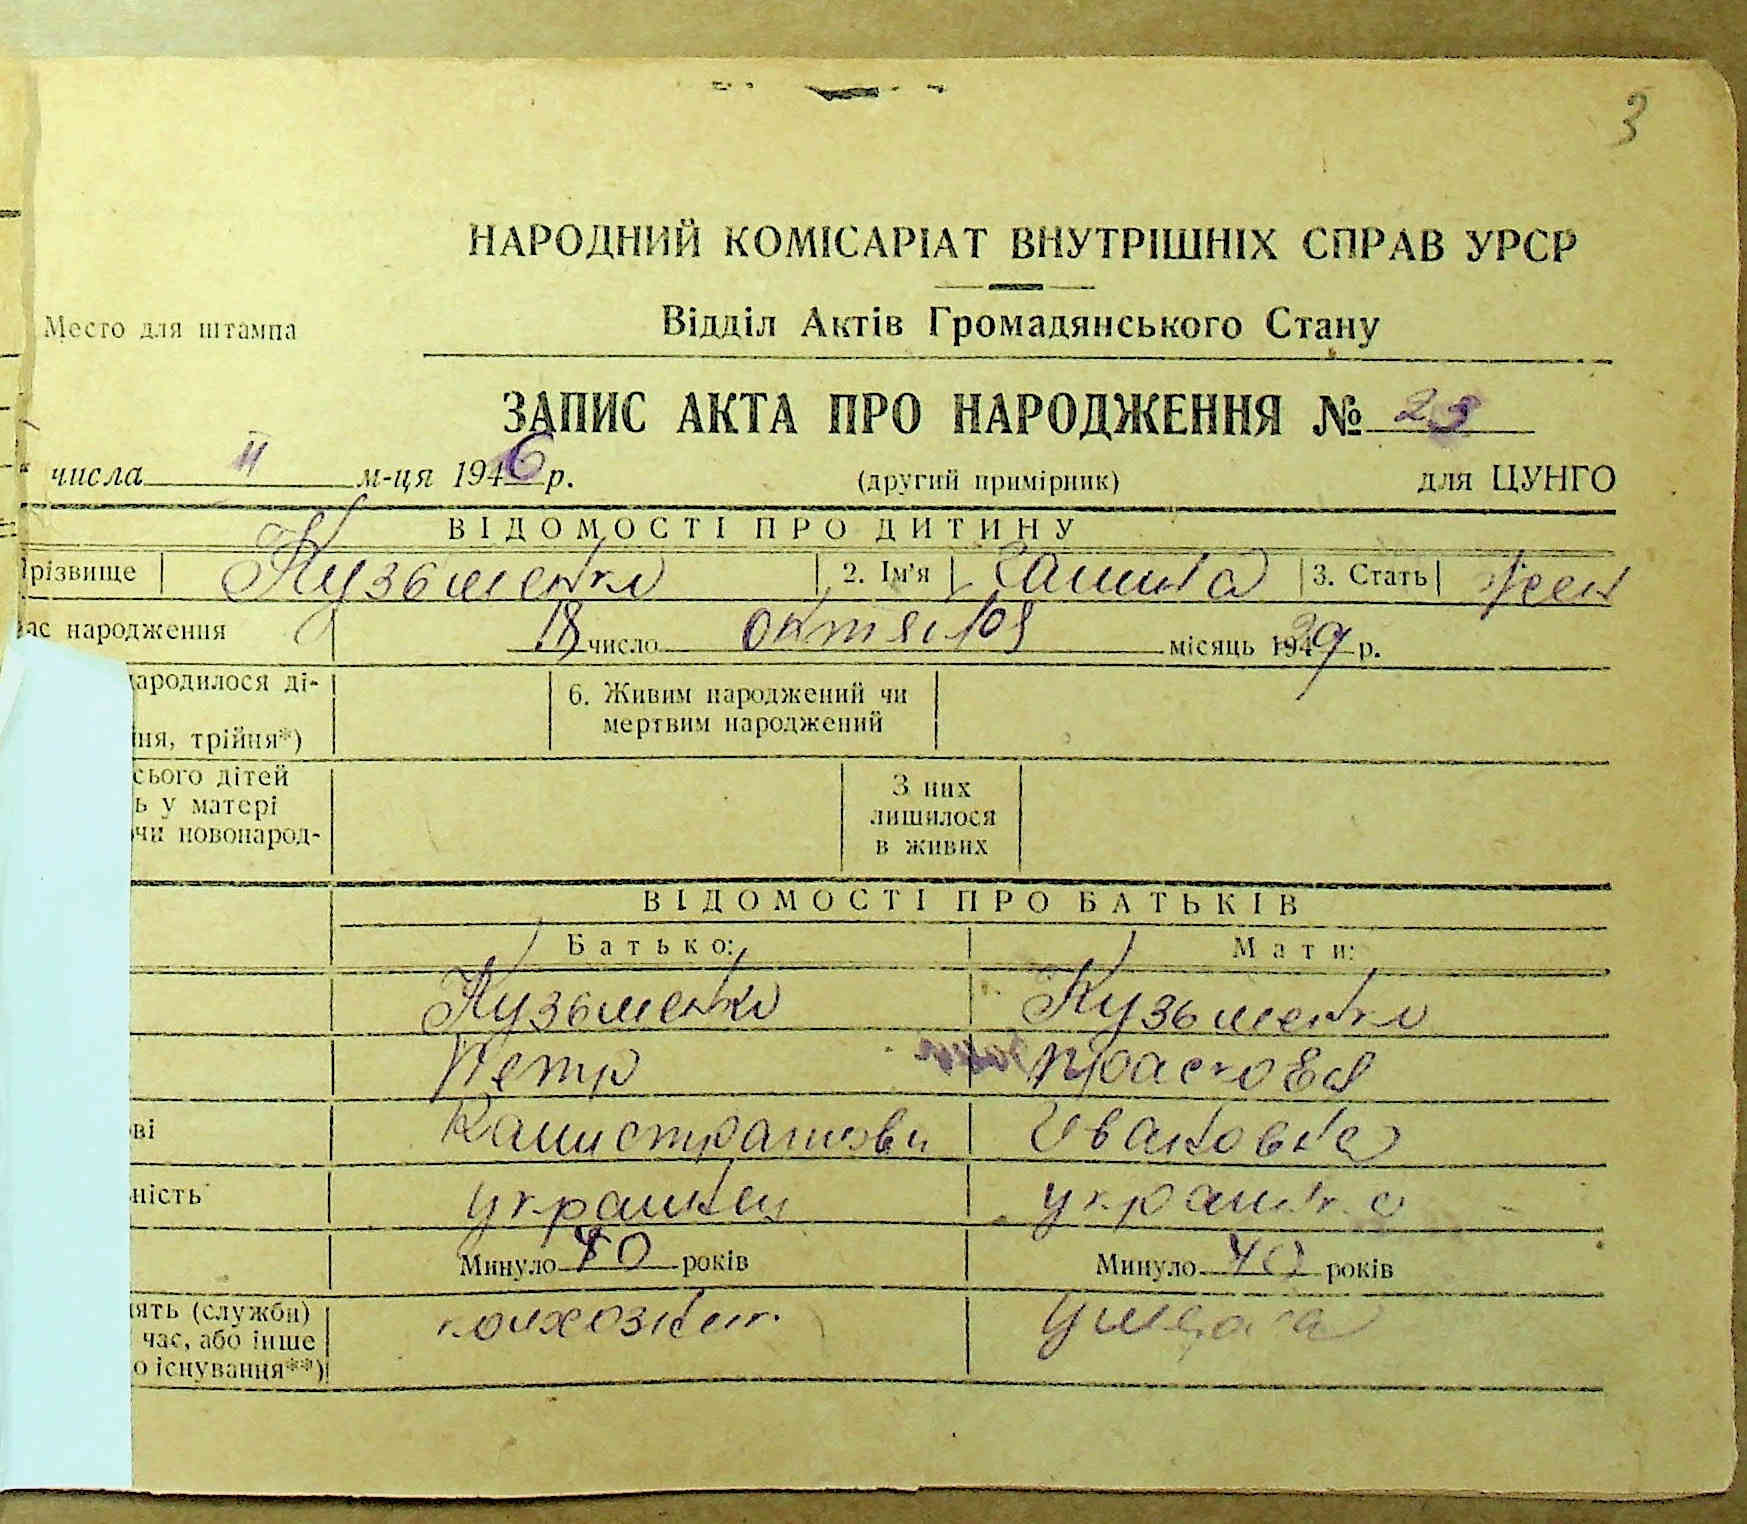 3
НАРОДНИЙ КОМІСАРІАТ ВНУТРІШНІХ СПРАВ УРСР
Место для штампа
Відділ Актів Громадянського Стану
ЗАПИС АКТА ПРО НАРОДЖЕННЯ № 23
числа II м-ця 1946 р. (другий примірник) для ЦУНГО
ВІДОМОСТІ ПРО ДИТИНУ
різвище Кузьменко 2. Ім'я Галина 3. Стать жен
ас народження 18 число октября місяць 1939 р.
народилося ді- 6. Живим народжений чи
мертвим народжений
ня, трійня*)
сього дітей З них
ь у матері лишилося
чи новонарод- в живих
ВІДОМОСТІ ПРО БАТЬКІВ
Батько: Мати:
Кузьменко Кузьменко
Петр Прасковя
ові Калистратови Ивановна
ність украинец украинка
Минуло 40 років Минуло 40 років
ять (служби) колхозник
час, або інше
о існування**)